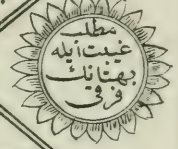 مطلب
غيبت ايله
بهتانك
فرقى